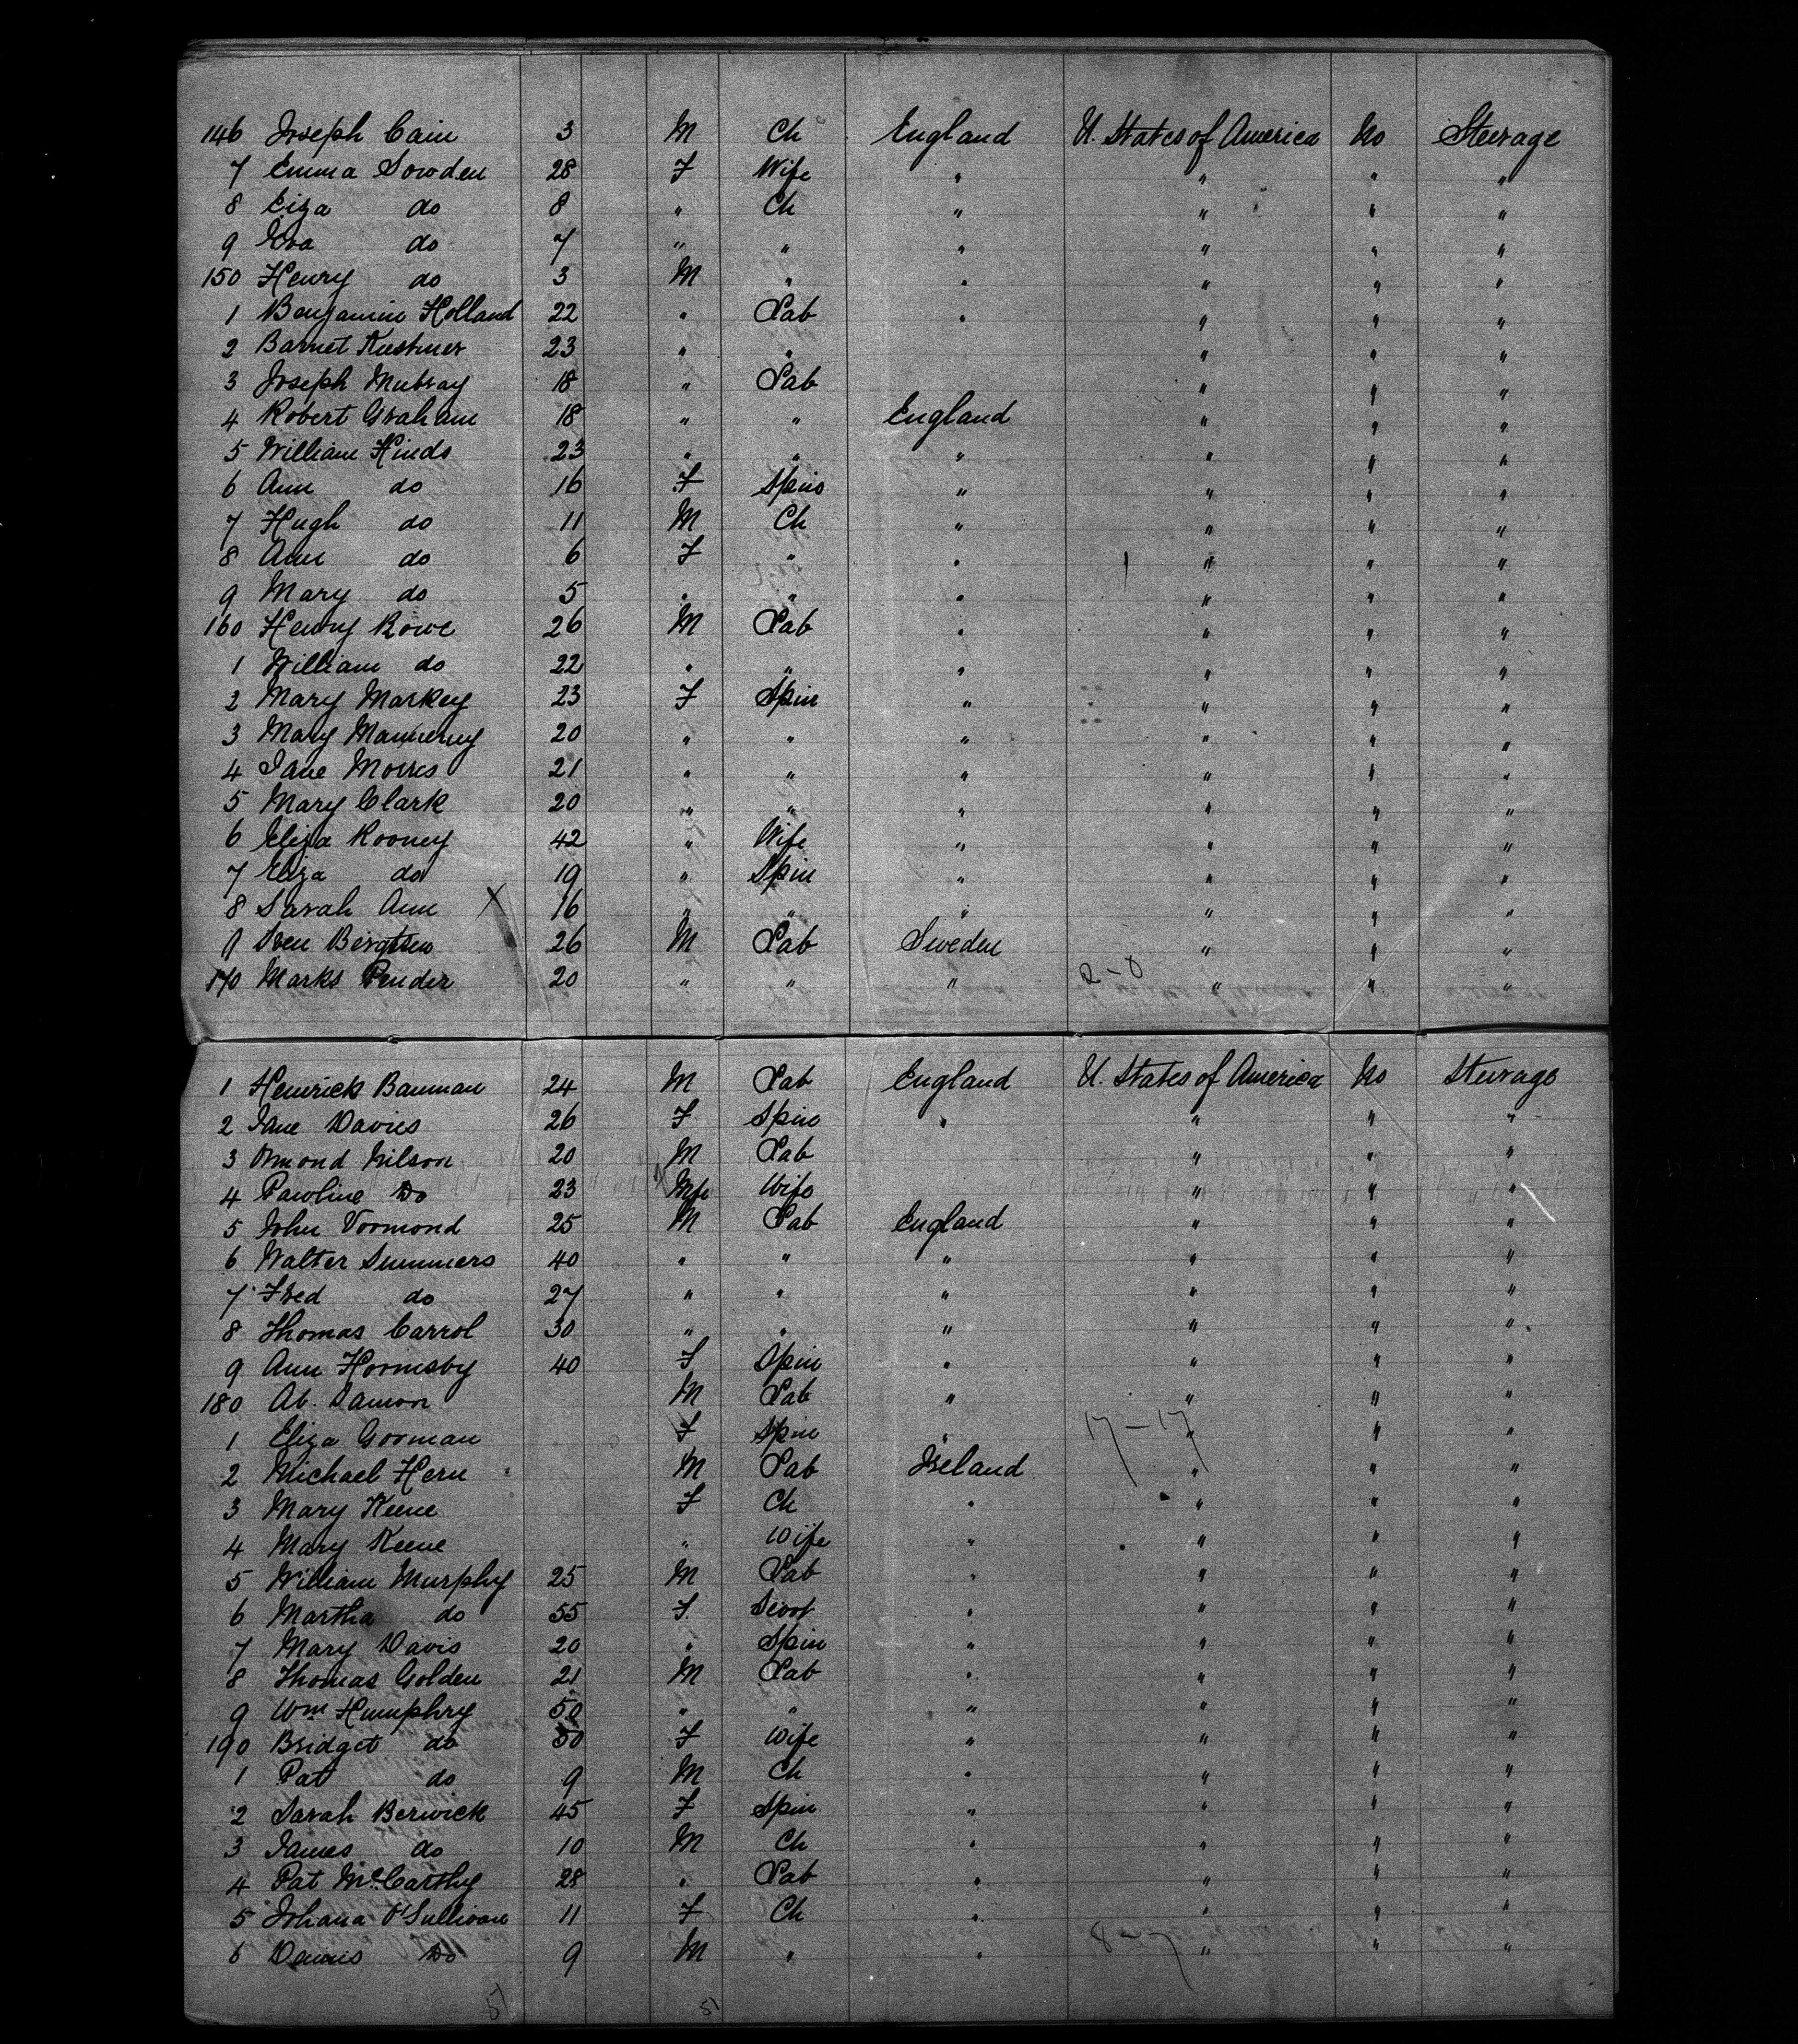 146 Joseph Cain 3 M Ch England U. States of America No Steerage
7 Emma Sowden 28 F Wife " " " "
8 Eiza do 8 " Ch " " " "
9 Eva do 7 " " " " " "
150 Henry do 3 M " " " " "
1 Benjamin Holland 22 " Lab " " " "
2 Barnet Kustner 23 " " " " "
3 Joseph Mubray 18 " Lab " " "
4 Robert Graham 18 " " England " " "
5 William Hinds 23 " " " " " "
6 Ann do 16 F Spins " " " "
7 Hugh do 11 M Ch " " " "
8 Ann do 6 F " " " " "
9 Mary do 5 " " " " " "
160 Henry Rowe 26 M Lab " " " "
1 William do 22 " " " " " "
2 Mary Markey 23 F Spin " " " "
3 Mary 20 " " " " " "
4 Jane Morris 21 " " " " " "
5 Mary Clark 20 " " " " " "
6 Eliza Rooney 42 " Wife " " " "
7 Eliza do 19 " Spin " " " "
8 Sarah Ann X 16 " " " " " "
9 Sven Bergtsen 26 M Lab Sweden " " "
170 Marks Pender 20 " " " 2-0 " " "
1 Henrick Bauman 24 M Lab England U. States of America No Steerage
2 Jane Davies 26 F Spin " " " "
3 Omond Nilson 20 M Lab " " "
4 Pawline Do 23 Wife " " "
5 John Vormond 25 M Lab England " " "
6 Walter Summers 40 " " " " " "
7 Fred do 27 " " " " " "
8 Thomas Carrol 30 " " " " " "
9 Ann Hormsby 40 F Spin " " " "
180 Ab. Damon M Lab " " " "
1 Eliza Gorman F Spin " 17-17 " " "
2 Michael Hern M Lab Ireland " " "
3 Mary Keene F Ch " " " "
4 Mary Keene " Wife " " " "
5 William Murphy 25 M Lab " " " "
6 Martha do 55 F " " " "
7 Mary Davis 20 " Spin " " " "
8 Thomas Golden 21 M Lab " " " "
9 Wm Humphry 50 " " " " " "
190 Bridget do 50 F Wife " " " "
1 Pat do 9 M Ch " " " "
2 Sarah Berwick 45 F Spin " " " "
3 James do 10 M Ch " " " "
4 Pat McCarthy 28 " Lab " " " "
5 Johana O'Sullivan 11 F Ch " " " "
6 Dennis Do 9 M " " 8-7 " " "
51 51